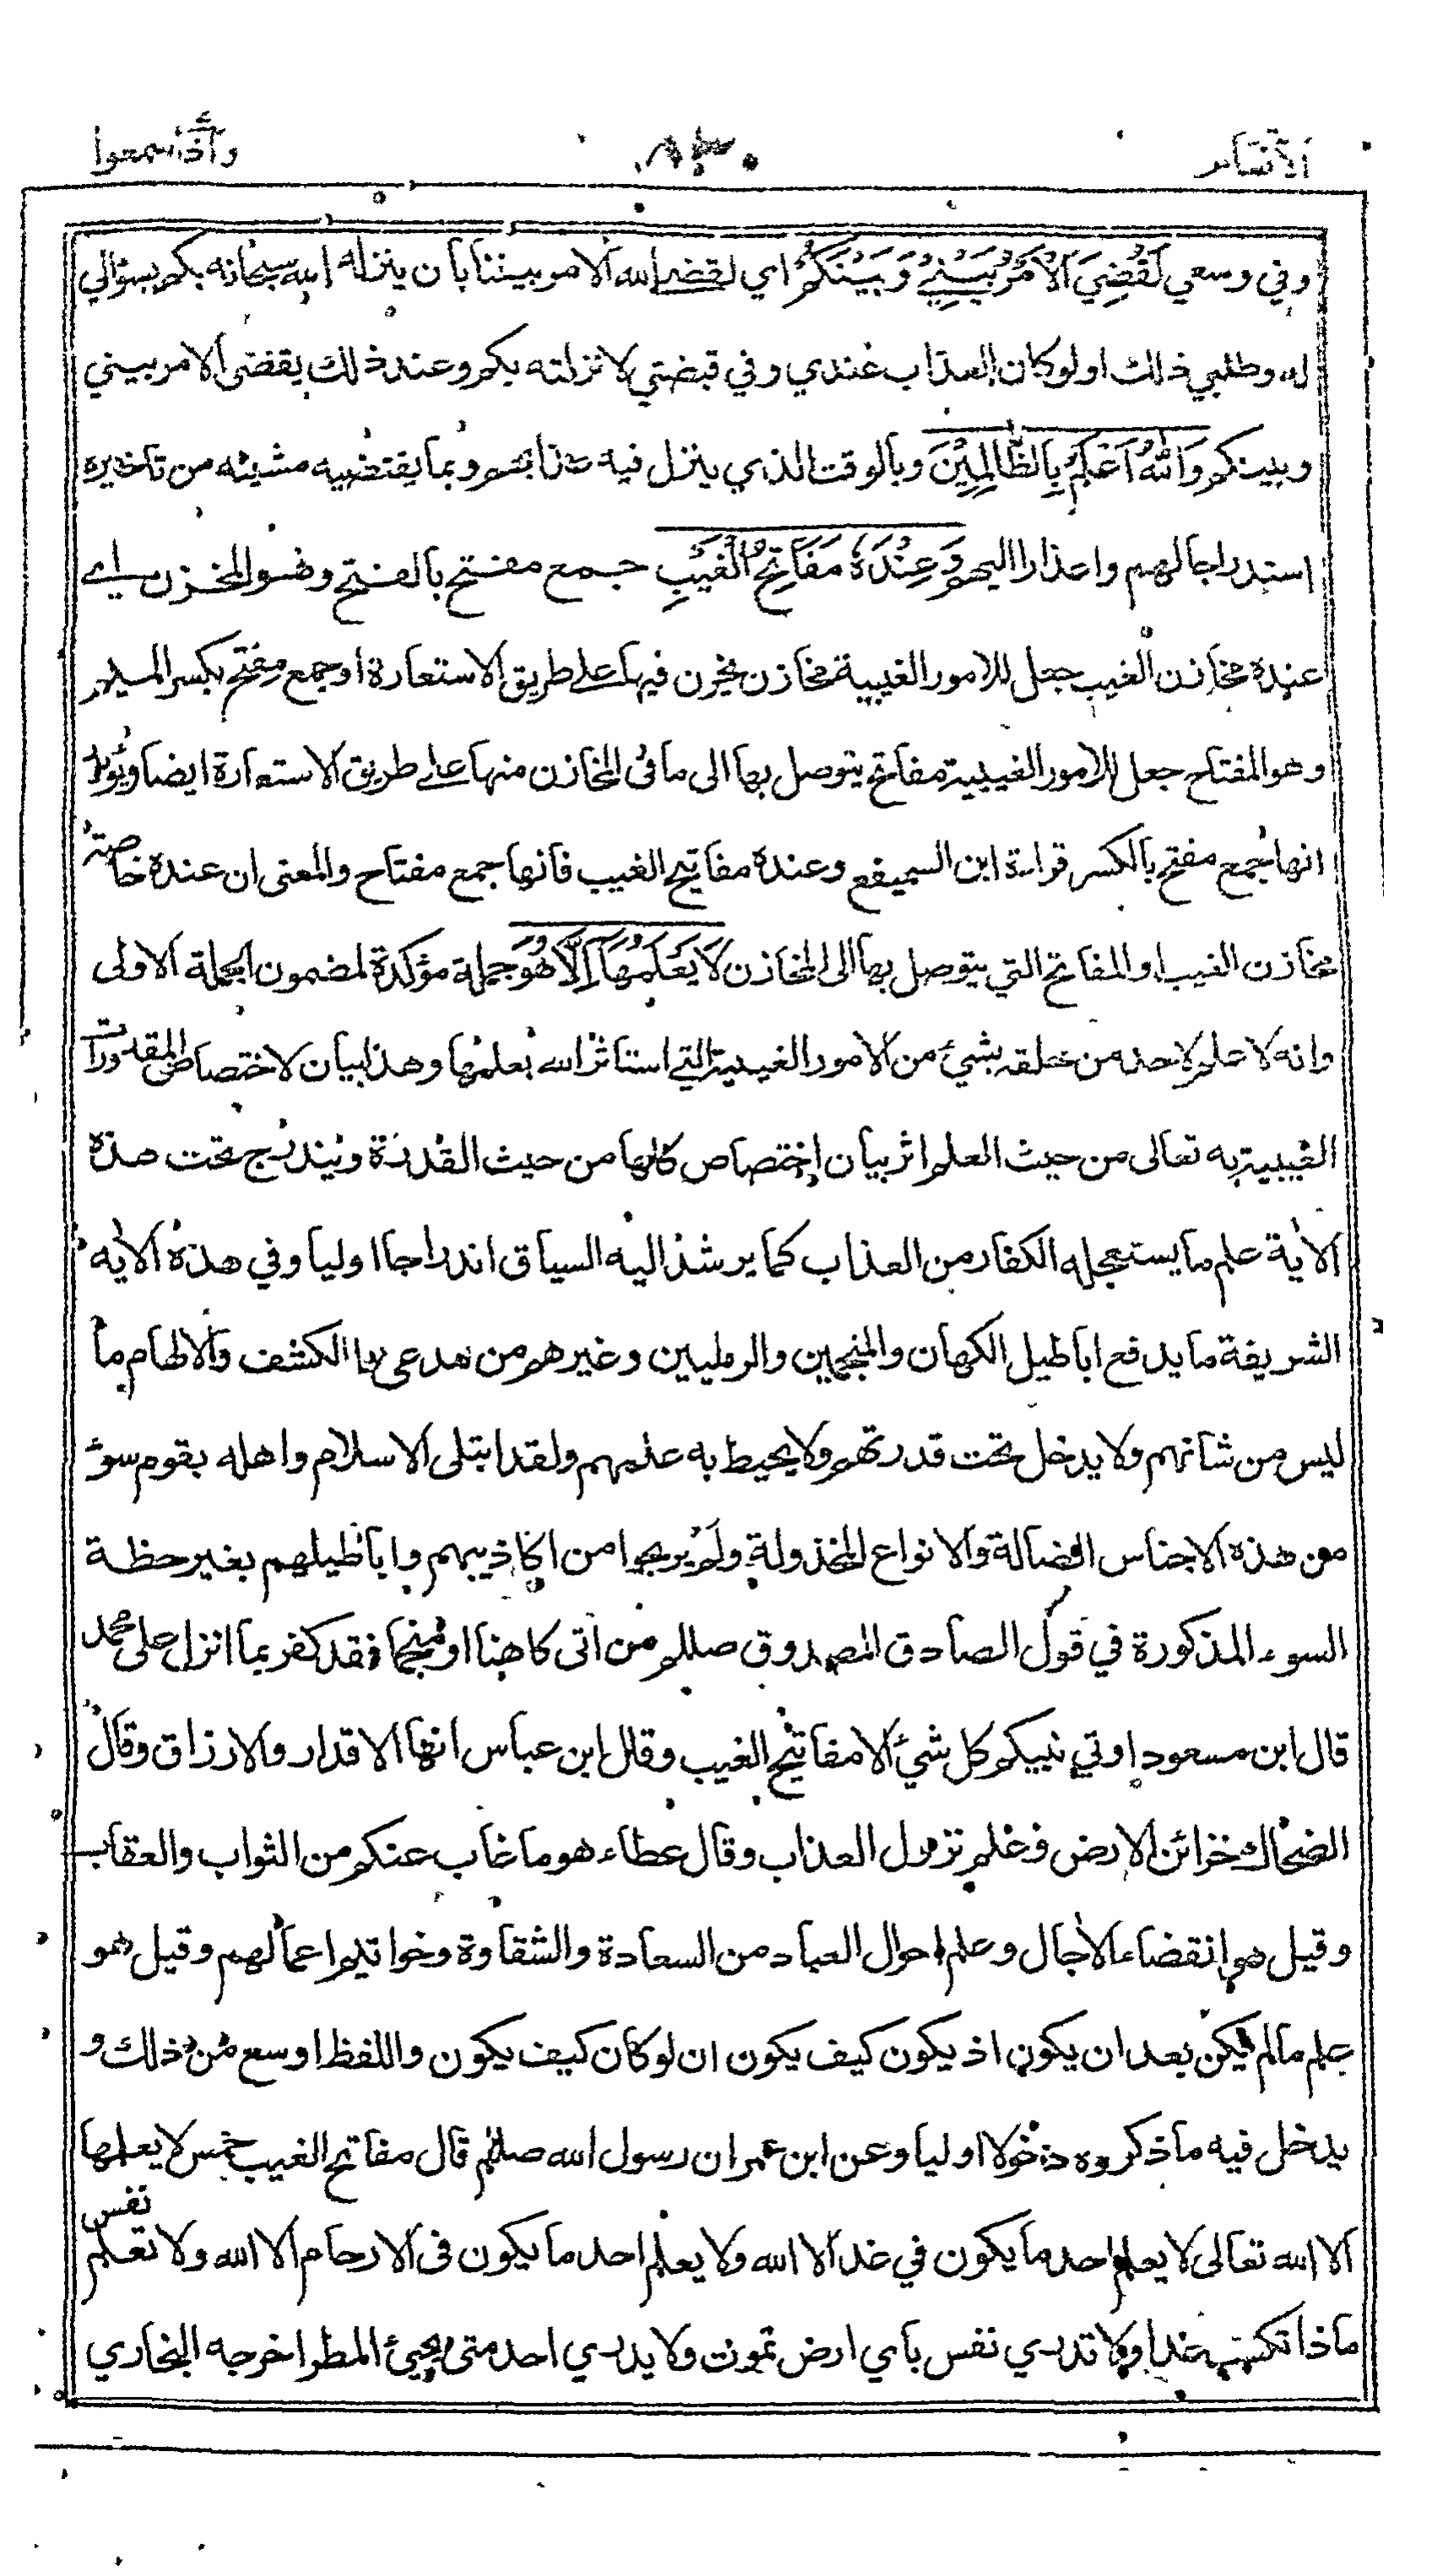 واذا سمعوا ٨٣٠ الانعام
وفي وسعي لَقُضِيَ الْاَمْرُ بَيْنِيْ وَبَيْنَكُمْ اي لقضى الله الامر بيننا بان ينزله الله سبحانه بكم بسؤالي
له وطلبي ذلك او لو كان العذاب عندي وفي قبضتي لانزلته بكم وعند ذلك يقضى الامر بيني
وبينكم وَاللّٰهُ اَعْلَمُ بِالظَّالِمِيْنَ وبالوقت الذي ينزل فيه عذابهم وبما يقتضيه مشيئه من تاخيره
استدراجا لهم واعذارا اليهم وَعِنْدَهٗ مَفَاتِحُ الْغَيْبِ جمع مفتح بالفتح وهو المخزن اي
عنده مخازن الغيب جعل للامور الغيبية مخازن يخزن فيها على طريق الاستعارة او جمع مِفتح بكسر الميم
وهو المفتاح جعل للامور الغيبية مفاتح يتوصل بها الى ما في المخازن منها على طريق الاستعارة ايضا ويؤيد
انها جمع مفتح بالكسر قراءة ابن السميفع وعنده مفاتيح الغيب فانها جمع مفتاح والمعنى ان عنده خاصة
مخازن الغيب او المفاتح التي يتوصل بها الى المخازن لَا يَعْلَمُهَا اِلَّا هُوَ جملة مؤكدة لمضمون الجملة الاولى
وانه لا علم لاحد من خلقه بشيء من الامور الغيبية التي استاثر الله بعلمها وهذا بيان لاختصاص المقدورات
الغيبية به تعالى من حيث العلم اثر بيان اختصاص كلها من حيث القدرة ويندرج تحت هذه
الاية علم ما يستعجله الكفار من العذاب كما يرشد اليه السياق اندراجا اوليا وفي هذه الايه
الشريفة ما يدفع اباطيل الكهان والمنجمين والرمليين وغيرهم من مدعى الكشف والالهام ما
ليس من شانهم ولا يدخل تحت قدرتهم ولا يحيط به علمهم ولقد ابتلى الاسلام واهله بقوم سوء
من هذه الاجناس الضالة والانواع المخذولة ولم يربحوا من اكاذيبهم واباطيلهم بغير حظة
السوء المذكورة في قول الصادق المصدوق صللم من اتى كاهنا او منجما فقد كفر بما انزل على محمد
قال ابن مسعود اوتي نبيكم كل شيء الا مفاتيح الغيب وقال ابن عباس انها الاقدار والارزاق وقال
الضحاك خزائن الارض وعلم نزول العذاب وقال عطاء هو ما غاب عنكم من الثواب والعقاب
وقيل هو انقضاء الاجال وعلم احوال العباد من السعادة والشقاوة وخواتيم اعمالهم وقيل هو
علم ما لم يكن بعد ان يكون اذ يكون كيف يكون ان لو كان كيف يكون واللفظ اوسع من ذلك و
يدخل فيه ما ذكروه دخولا اوليا وعن ابن عمر ان رسول الله صللم قال مفاتح الغيب خمس لا يعلمها
الا الله تعالى لا يعلم احد ما يكون في غد الا الله ولا يعلم احد ما يكون في الارحام الا الله ولا تعلم نفس
ماذا تكسب غدا ولا تدري نفس باي ارض تموت ولا يدري احد متى يجيئ المطر اخرجه البخاري